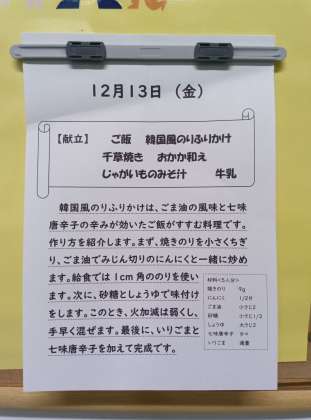 12月13日（金）
【献立】 ご飯 韓国風のりふりかけ
千草焼き おかか和え
じゃがいものみそ汁 牛乳
韓国風のりふりかけは、ごま油の風味と七味
唐辛子の辛みが効いたご飯がすすむ料理です。
作り方を紹介します。まず、焼きのりを小さくちぎ
り、ごま油でみじん切りのにんにくと一緒に炒め
ます。給食では1cm角ののりを使い
ます。次に、砂糖としょうゆで味付け
をします。このとき、火加減は弱くし、
手早く混ぜます。最後に、いりごまと
七味唐辛子を加えて完成です。
材料<5人分>
焼きのり 9g
にんにく 1/2片
ごま油 小さじ2
砂糖 小さじ1/2
しょうゆ 大さじ2
七味唐辛子 少々
いりごま 適量